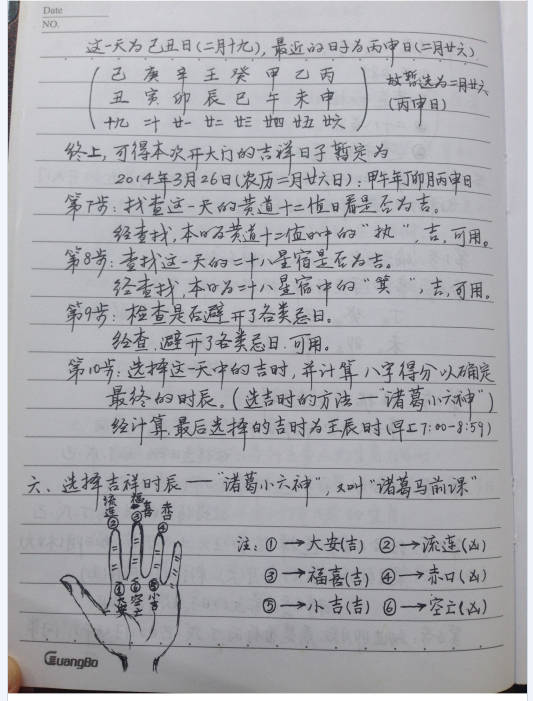 Date
NO.
这一天为己丑日(二月十九),最近的日子为丙申日(二月廿六)
己 庚 辛 壬 癸 甲 乙 丙
丑 寅 卯 辰 巳 午 未 申
十九 二十 廿一 廿二 廿三 廿四 廿五 廿六
故暂选为二月廿六
(丙申日)
终上,可得本次开大门的吉祥日子暂定为
2014年3月26日(农历二月廿六日):甲午年丁卯月丙申日
第7步:找查这一天的黄道十二值日看是否为吉。
经查找,本日为黄道十二值日中的“执”,吉,可用。
第8步:查找这一天的二十八星宿是否为吉。
经查找,本日为二十八星宿中的“箕”,吉,可用。
第9步:检查是否避开了各类忌日。
经查,避开了各类忌日,可用。
第10步:选择这一天中的吉时,并计算八字得分以确定
最终的时辰。(选吉时的方法—“诸葛小六神”)
经计算,最后选择的吉时为壬辰时(早上7:00-8:59)
六、选择吉祥时辰——“诸葛小六神”,又叫“诸葛马前课”
流连② 福喜③ 赤口④
①大安 ⑥空亡 ⑤小吉
注:①→大安(吉) ②→流连(凶)
③→福喜(吉) ④→赤口(凶)
⑤→小吉(吉) ⑥→空亡(凶)
GuangBo